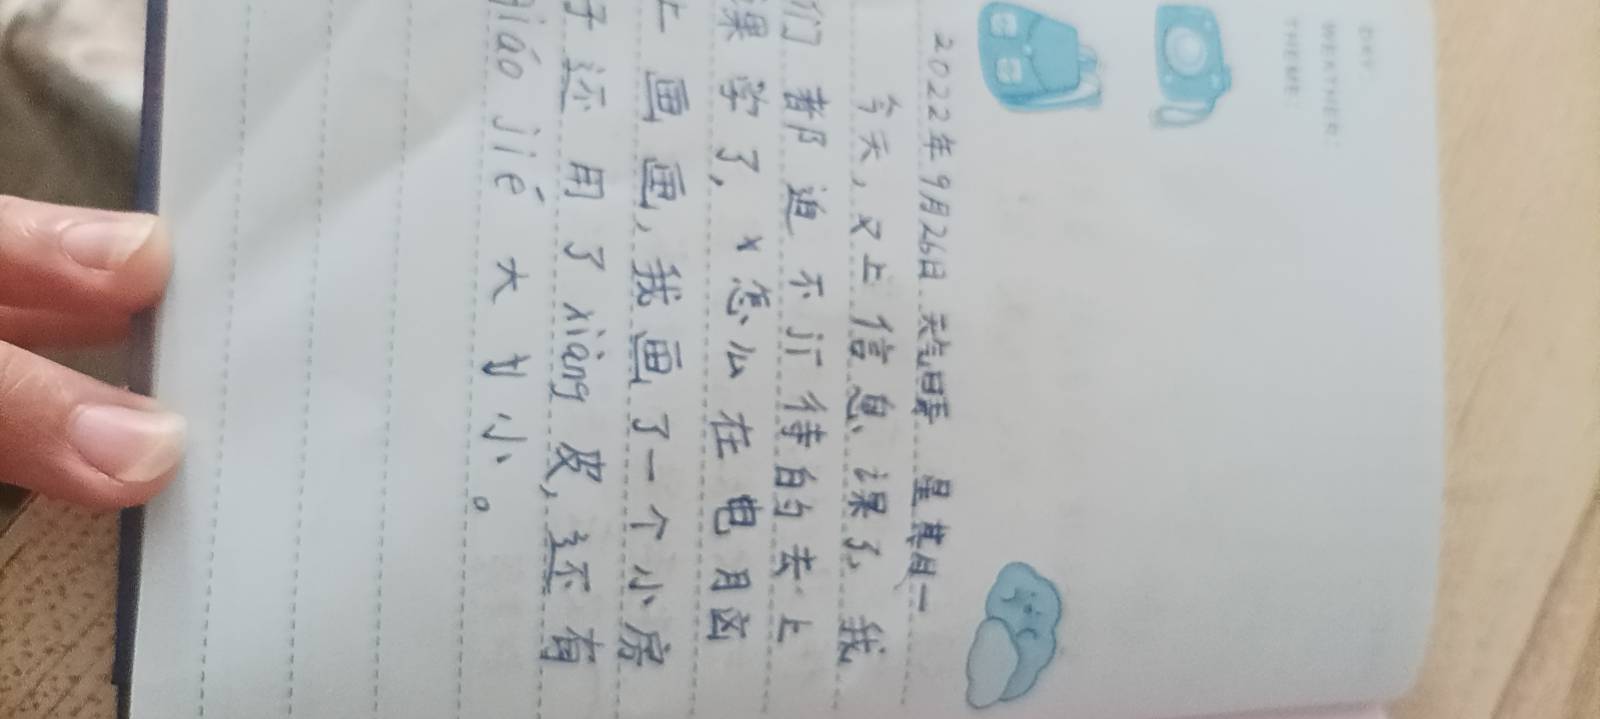 DAY:
WEATHER:
THEME:
2022年9月26日 天气晴 星其月一
今天，又上信息课了，我
们都迫不及待的去上
课学了，怎么在电月囟
上画画，我画了一个小房
子还用了xiàng皮，还有
tiáo jié 大小。